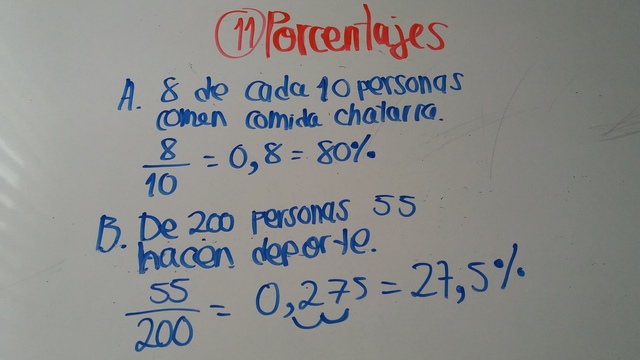 11 Porcentajes
A. 8 de cada 10 personas
comen comida chatarra.
8/10 = 0,8 = 80%
B. De 200 personas 55
hacen deporte.
55/200 = 0,275 = 27,5%